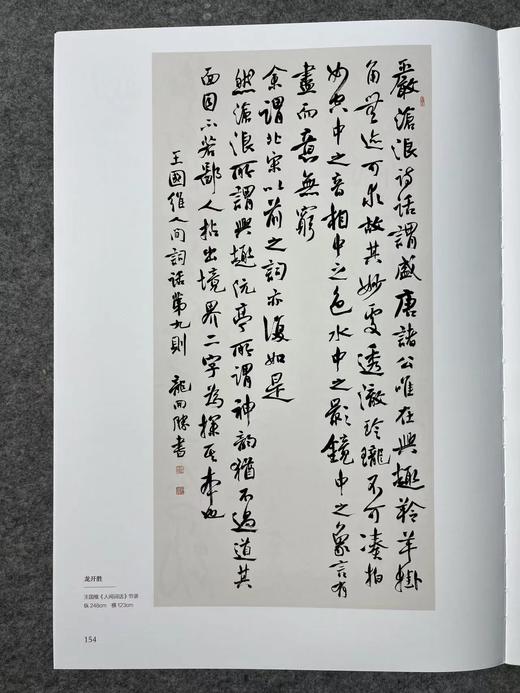 嚴滄浪诗话謂盛唐諸公唯在興趣羚羊掛
角無迹可求故其妙處透澈玲瓏不可湊柏
如空中之音相中之色水中之影鏡中之象言有
盡而意無窮
余謂北宋以前之詞亦復如是
然滄浪所謂興趣阮亭所謂神韵猶不過道其
面目不若鄙人拈出境界二字為探其本也
王國維人间詞话第九則 龍開勝書
龙开胜
王国维《人间词话》节录
纵 248cm 横 123cm
154